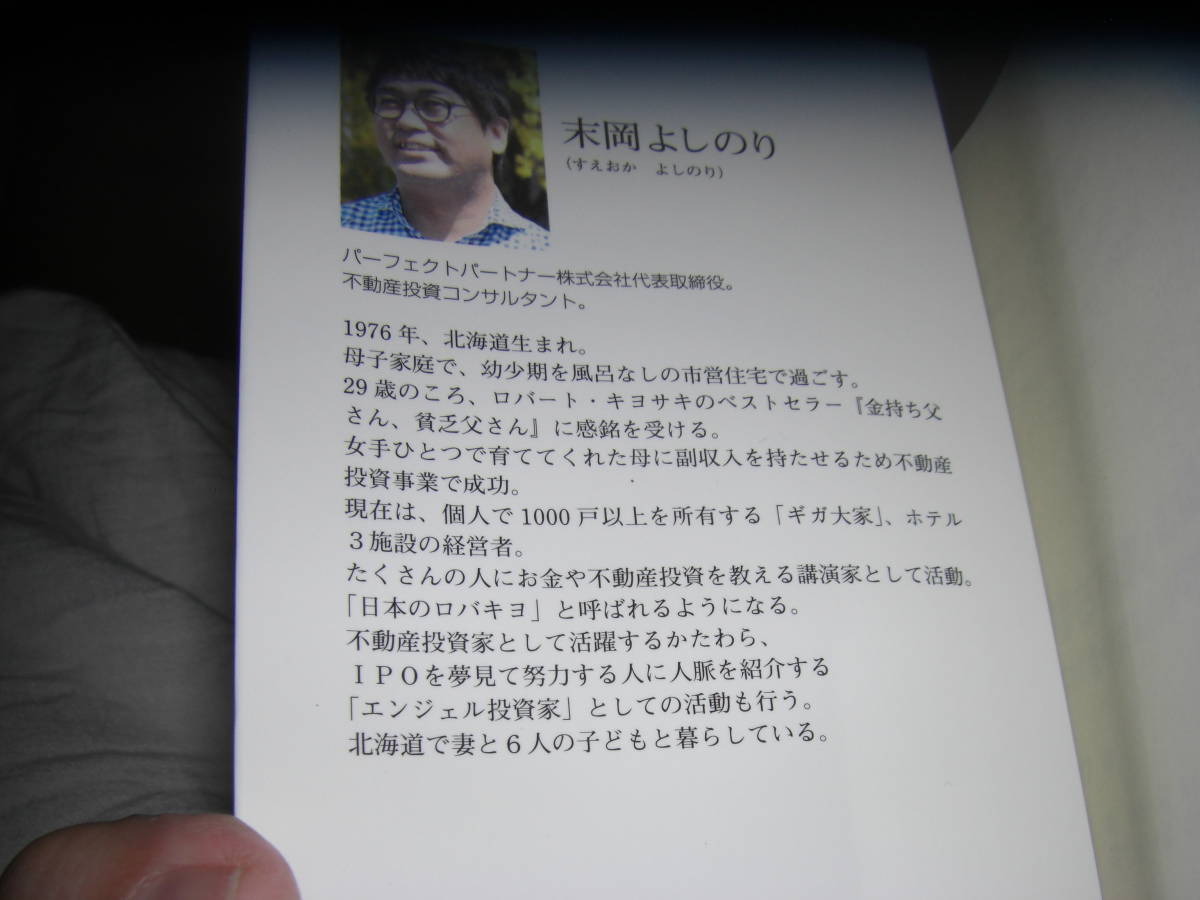 末岡よしのり
（すえおか　よしのり）
パーフェクトパートナー株式会社代表取締役。
不動産投資コンサルタント。
1976年、北海道生まれ。
母子家庭で、幼少期を風呂なしの市営住宅で過ごす。
29歳のころ、ロバート・キヨサキのベストセラー『金持ち父
さん、貧乏父さん』に感銘を受ける。
女手ひとつで育ててくれた母に副収入を持たせるため不動産
投資事業で成功。
現在は、個人で1000戸以上を所有する「ギガ大家」、ホテル
３施設の経営者。
たくさんの人にお金や不動産投資を教える講演家として活動。
「日本のロバキヨ」と呼ばれるようになる。
不動産投資家として活躍するかたわら、
ＩＰＯを夢見て努力する人に人脈を紹介する
「エンジェル投資家」としての活動も行う。
北海道で妻と６人の子どもと暮らしている。